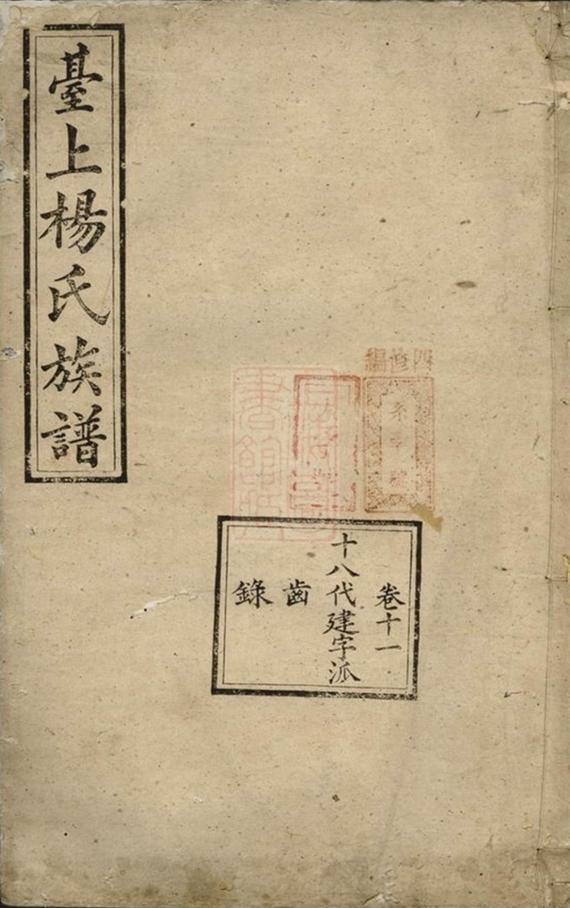 臺上楊氏族譜
四世編
卷十一
十八代建字派
齒
錄